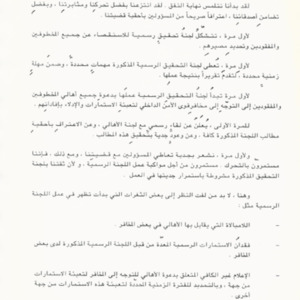 لقد بدأنا نتلمس نهاية النفق . لقد انتزعنا بفضل تحركنا ومثابرتنا ، وبفضل
تضامن أصدقائنا ، اعترافاً صريحاً من المسؤولين بأحقية قضيتنا .
لأول مرة ، تتشكّل لجنة تحقيق رسمية للاستقصاء عن جميع المخطوفين
والمفقودين وتحديد مصيرهم .
لأول مرة ، تُعطى لجنة التحقيق الرسمية المذكورة مهمات محددة ، وضمن مهلة
زمنية محددة ، لتقدم تقريراً بنتيجة عملها .
لأول مرة تبدأ لجنة التحقيق الرسمية عملها بدعوة جميع أهالي المخطوفين
والمفقودين إلى التوجّه إلى مخافر قوى الأمن الداخلي لتعبئة استمارات والإدلاء بإفاداتهم .
للمرة الأولى ، يُعلن عن لقاء رسمي مع لجنة الأهالي ، وعن الاعتراف بأحقية
مطالب اللجنة المذكورة كافة ، وعن وعود جدية بتحقيق هذه المطالب .
لأول مرة ، نشعر بجدية تعاطي المسؤولين مع قضيتنا ، ومع ذلك ، فإننا
مستمرون بالتحرك . مستمرون من أجل مواكبة عمل اللجنة الرسمية ، ولأن ثقتنا بلجنة
التحقيق المذكورة مشروطة باستمرار جديتها في العمل .
وهنا ، لا بد من لفت النظر إلى بعض الثغرات التي بدأت تظهر في عمل اللجنة
الرسمية مثل :
- اللامبالاة التي يقابل بها الأهالي في بعض المخافر .
- فقدان الاستمارات الرسمية المعدة من قبل اللجنة الرسمية المذكورة لدى بعض
المخافر .
- الإعلام غير الكافي المتعلق بدعوة الأهالي للتوجه إلى المخافر لتعبئة الاستمارات
من جهة . وبالتحديد للفترة الزمنية المحددة لتعبئة هذه الاستمارات من جهة
أخرى .